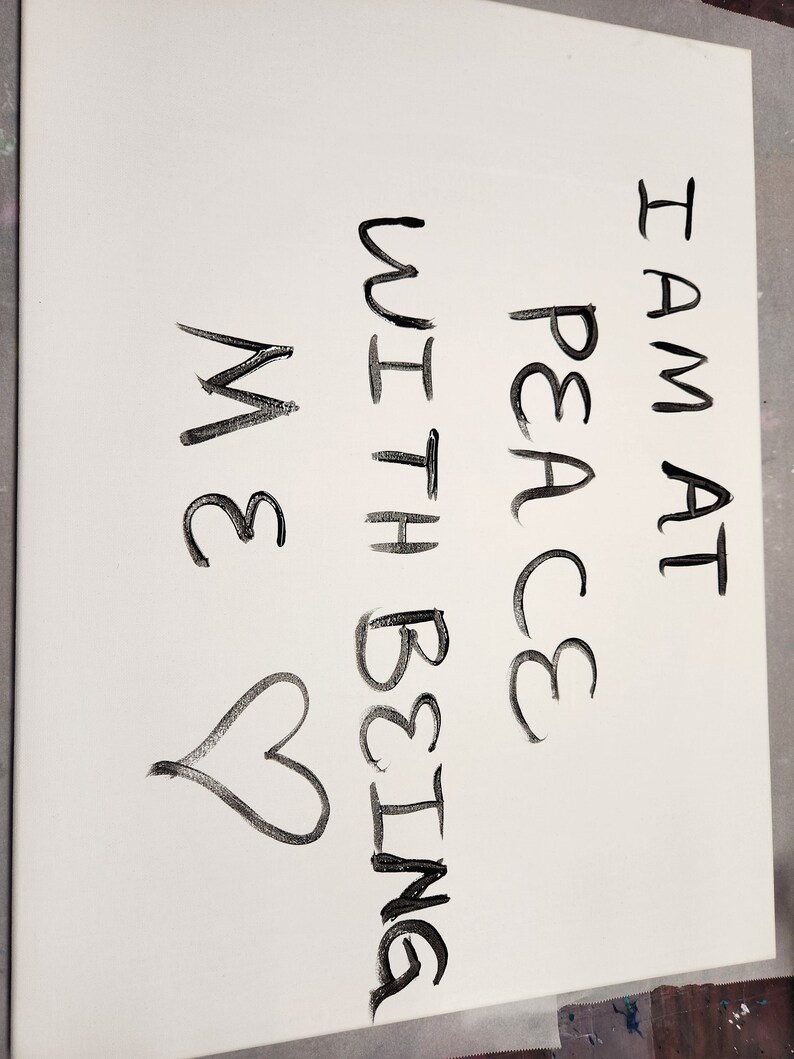 I AM AT
PEACE
WITH BEING
ME ♡